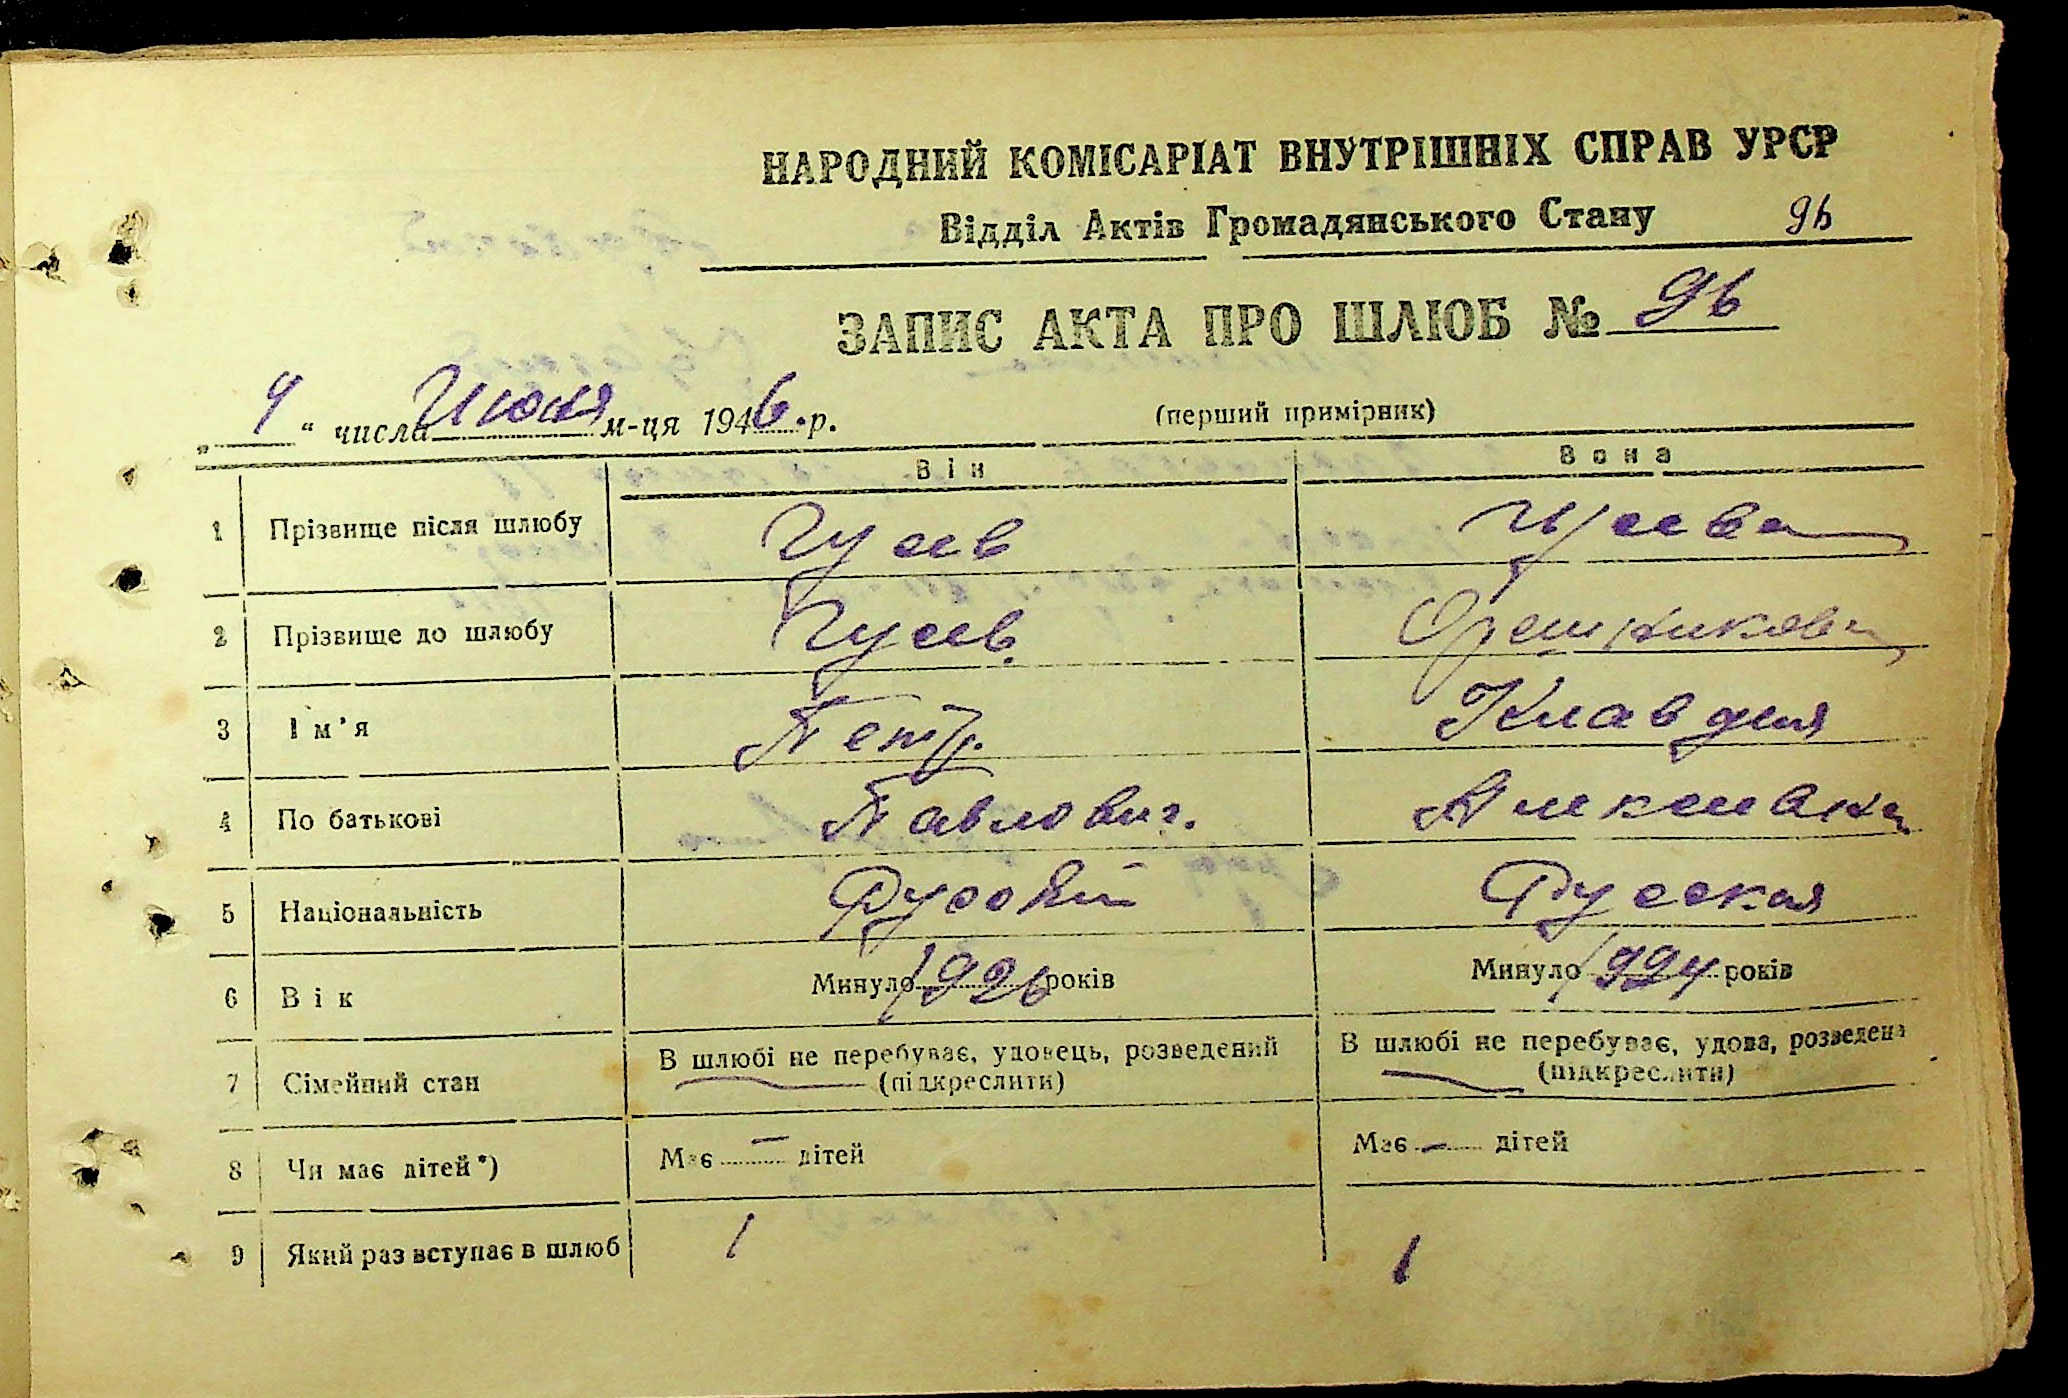 НАРОДНИЙ КОМІСАРІАТ ВНУТРІШНІХ СПРАВ УРСР
Відділ Актів Громадянського Стану 96
ЗАПИС АКТА ПРО ШЛЮБ № 96
„ 4 “ числа Июня м-ця 1946. р. (перший примірник)
Він Вона
1 Прізвище після шлюбу Гусев Гусева
2 Прізвище до шлюбу Гусев. Орешникова
3 Ім'я Петр. Клавдия
4 По батькові Павлович.
5 Національність Русский Русская
6 Вік Минуло 1926 років Минуло 1924 років
7 Сімейний стан В шлюбі не перебуває, удовець, розведений (підкреслити) В шлюбі не перебуває, удова, розведена (підкреслити)
8 Чи має дітей*) Має — дітей Має — дітей
9 Який раз вступає в шлюб 1 1